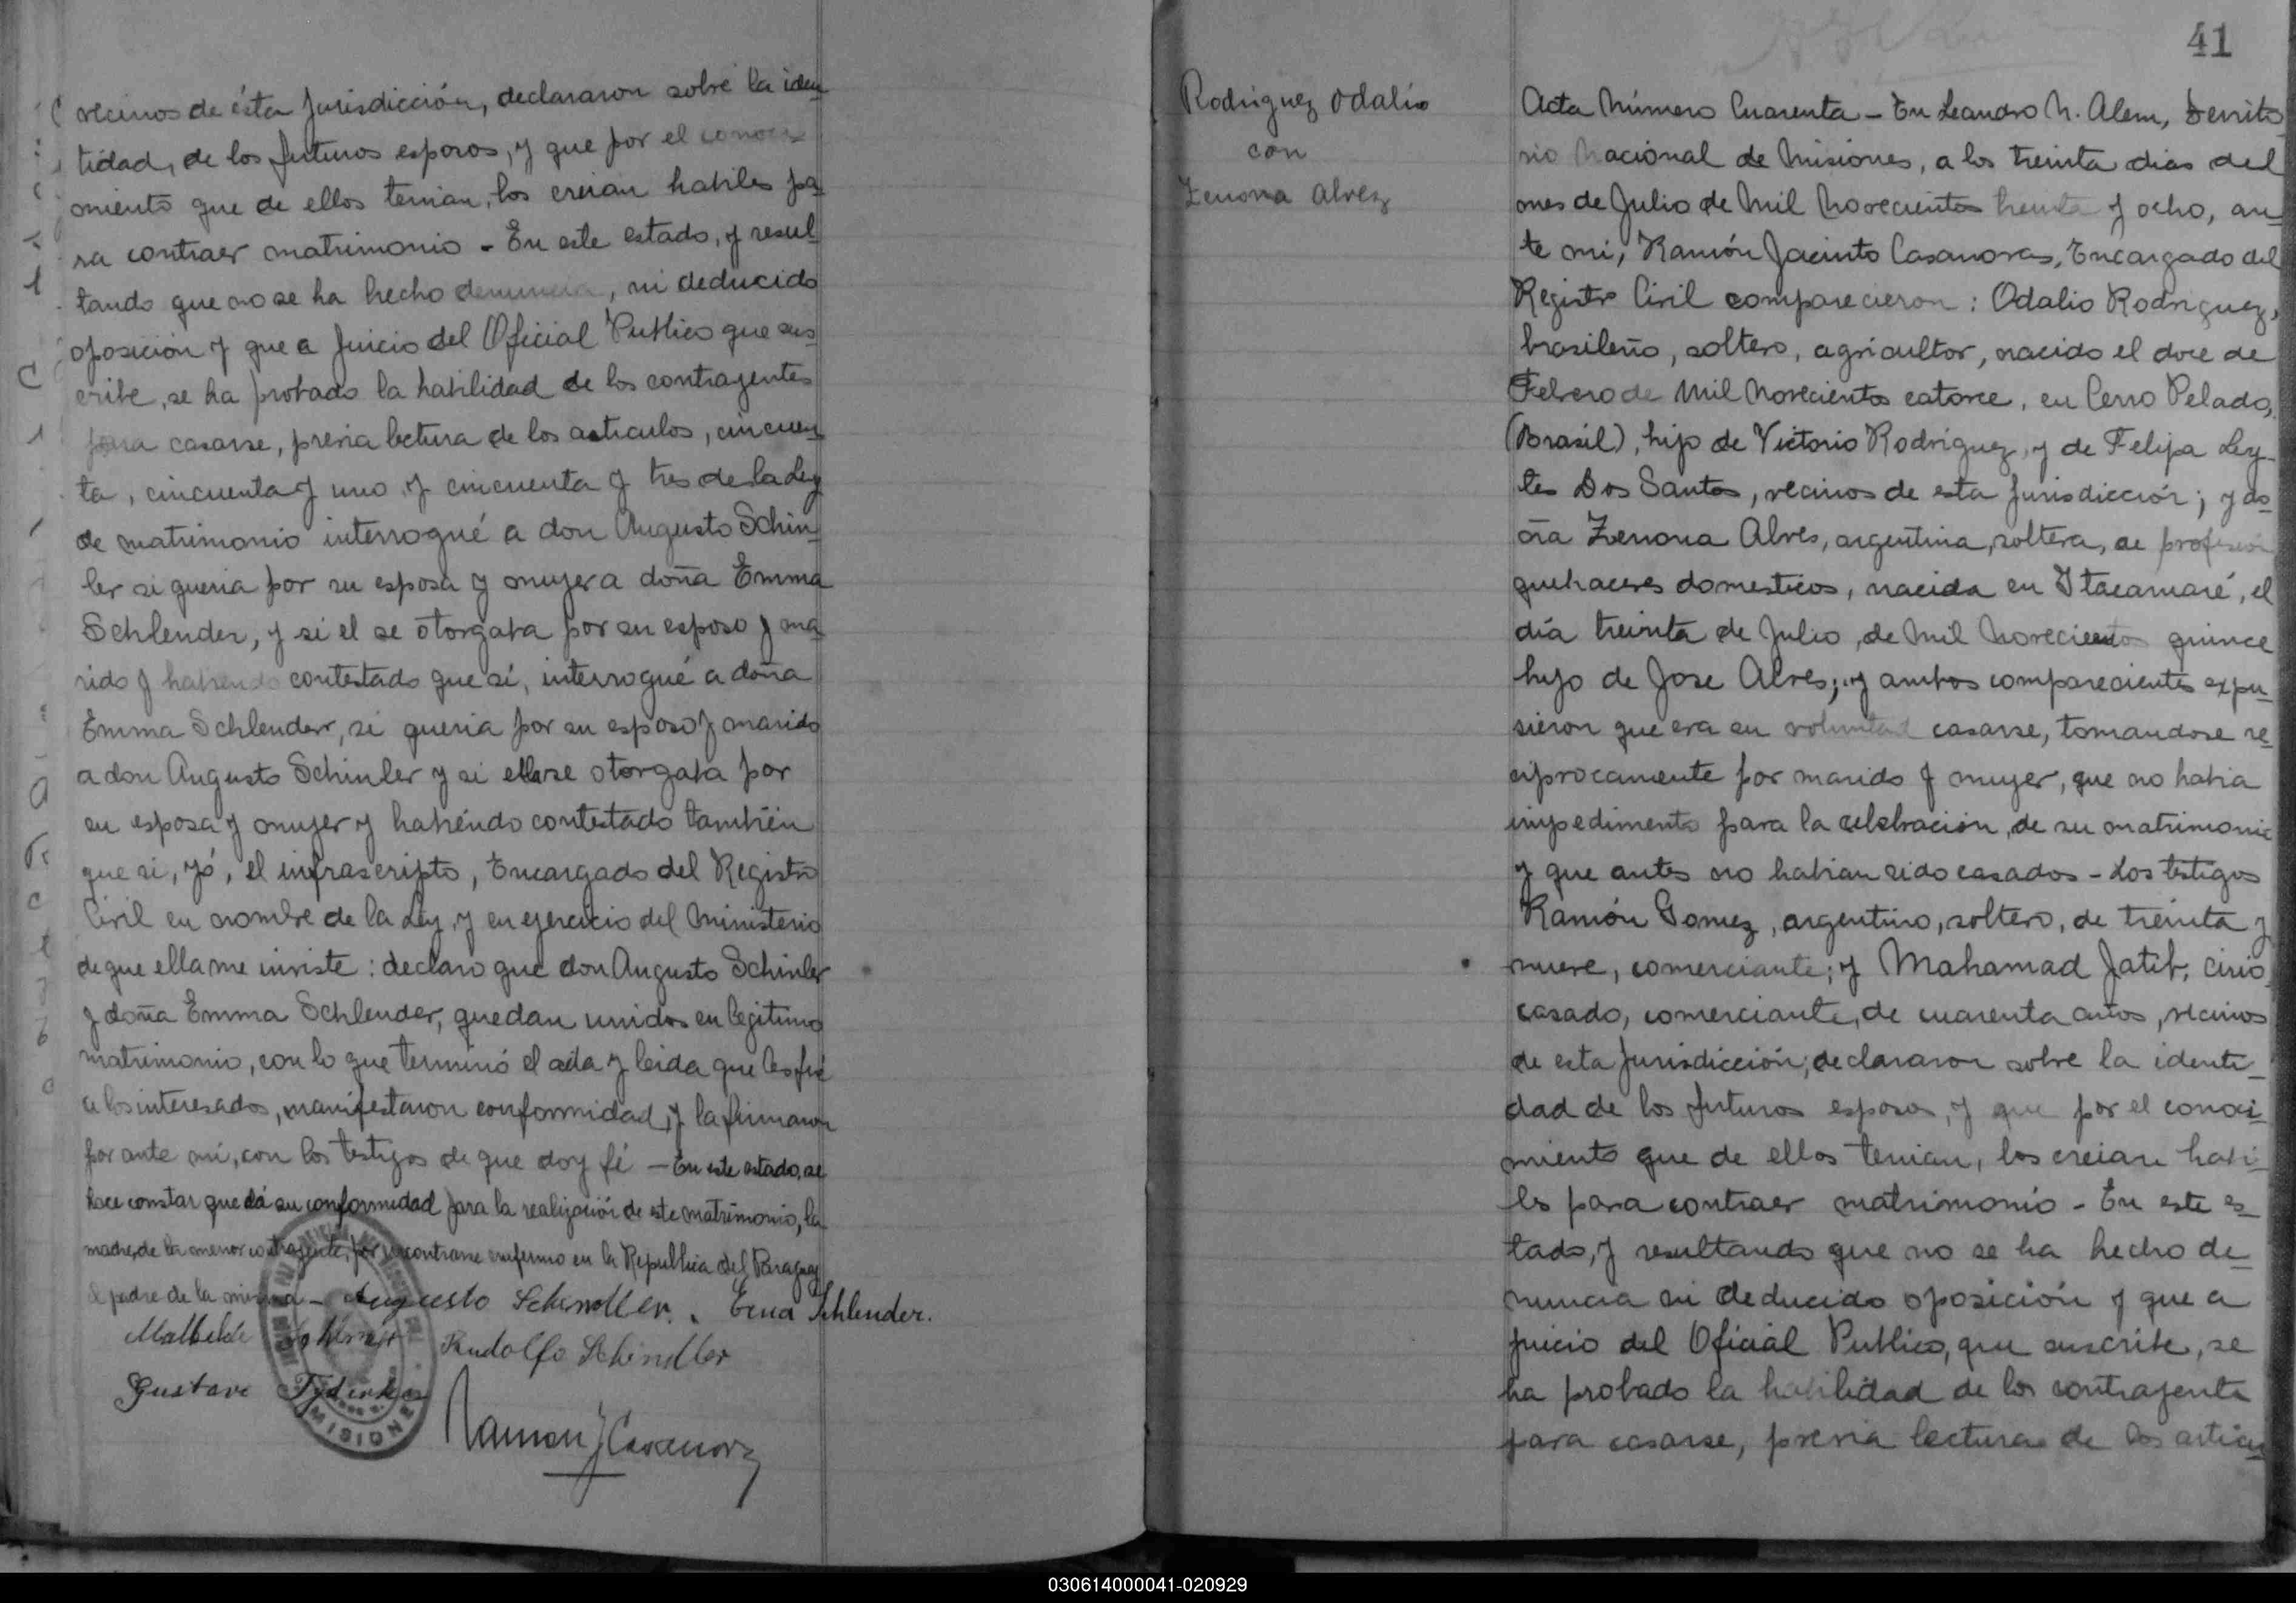 vecinos de ésta Jurisdicción, declararon sobre la iden
tidad, de los futuros esposos, y que por el conoci
miento que de ellos tenian, los creian habiles pa
ra contraer matrimonio - En este estado, y resul
tando que no se ha hecho denuncia, ni deducido
oposición y que a Juicio del Oficial Publico que sus
cribe, se ha probado la habilidad de los contrayentes
para casarse, previa lectura de los articulos, cincuen
ta, cincuenta y uno y cincuenta y tres de la Ley
de matrimonio interrogué a don Augusto Schin
ler si queria por su esposa y mujer a doña Emma
Schlender, y si el se otorgaba por su esposo y ma
rido y habiendo contestado que sí, interrogué a doña
Emma Schlender, si queria por su esposo y marido
a don Augusto Schinler y si ella se otorgaba por
su esposa y mujer y habiéndo contestado también
que si, yó, el infrascripto, Encargado del Registro
Civil en nombre de la Ley, y en ejercicio del Ministerio
de que ella me inviste: declaro que don Augusto Schinler
y doña Emma Schlender, quedan unidos en legitimo
matrimonio, con lo que terminó el acta y leida que les fué
a los interesados, manifestaron conformidad, y la firmaron
por ante mi, con los testigos de que doy fé - En este estado, se
hace constar que dá su conformidad para la realización de este matrimonio, la
madre, de la menor contrayente, por encontrarse enfermo en la Republica del Paraguay
el padre de la misma - Augusto Schindler. Erna Schlender.
Rudolfo Schindler
Gustavo
Ramon J Casanova
MISIONES
41
Rodriguez Odalio
con
Zenona Alvez
Acta Número Cuarenta - En Leandro N. Alem, Territo
rio Nacional de Misiones, a los treinta dias del
mes de Julio de Mil Novecientos treinta y ocho, an
te mi, Ramón Jacinto Casanovas, Encargado del
Registro Civil comparecieron: Odalio Rodriguez,
brasileño, soltero, agricultor, nacido el doce de
Febrero de Mil Novecientos catorce, en Cerro Pelado,
(Brasil), hijo de Victorio Rodriguez, y de Felipa Ley-
tes Dos Santos, vecinos de esta Jurisdicción; y do-
ña Zenona Alves, argentina, soltera, de profesión
quehaceres domesticos, nacida en Itacamaré, el
día treinta de Julio, de Mil Novecientos quince
hijo de Jose Alves; y ambos comparecientes expu-
sieron que era su voluntad casarse, tomandose re-
ciprocamente por marido y mujer, que no habia
impedimento para la celebración, de su matrimonio
y que antes no habian sido casados - Los testigos
Ramón Gomez, argentino, soltero, de treinta y
nueve, comerciante; y Mahamad Jatib, cirio
casado, comerciante, de cuarenta años, vecinos
de esta Jurisdicción, declararon sobre la identi-
dad de los futuros esposos, y que por el conoci-
miento que de ellos tenian, los creian habi-
les para contraer matrimonio - En este es-
tado, y resultando que no se ha hecho de-
nuncia ni deducido oposición y que a
juicio del Oficial Publico, que suscribe, se
ha probado la habilidad de los contrayente
para casarse, previa lectura de los articu
030614000041-020929